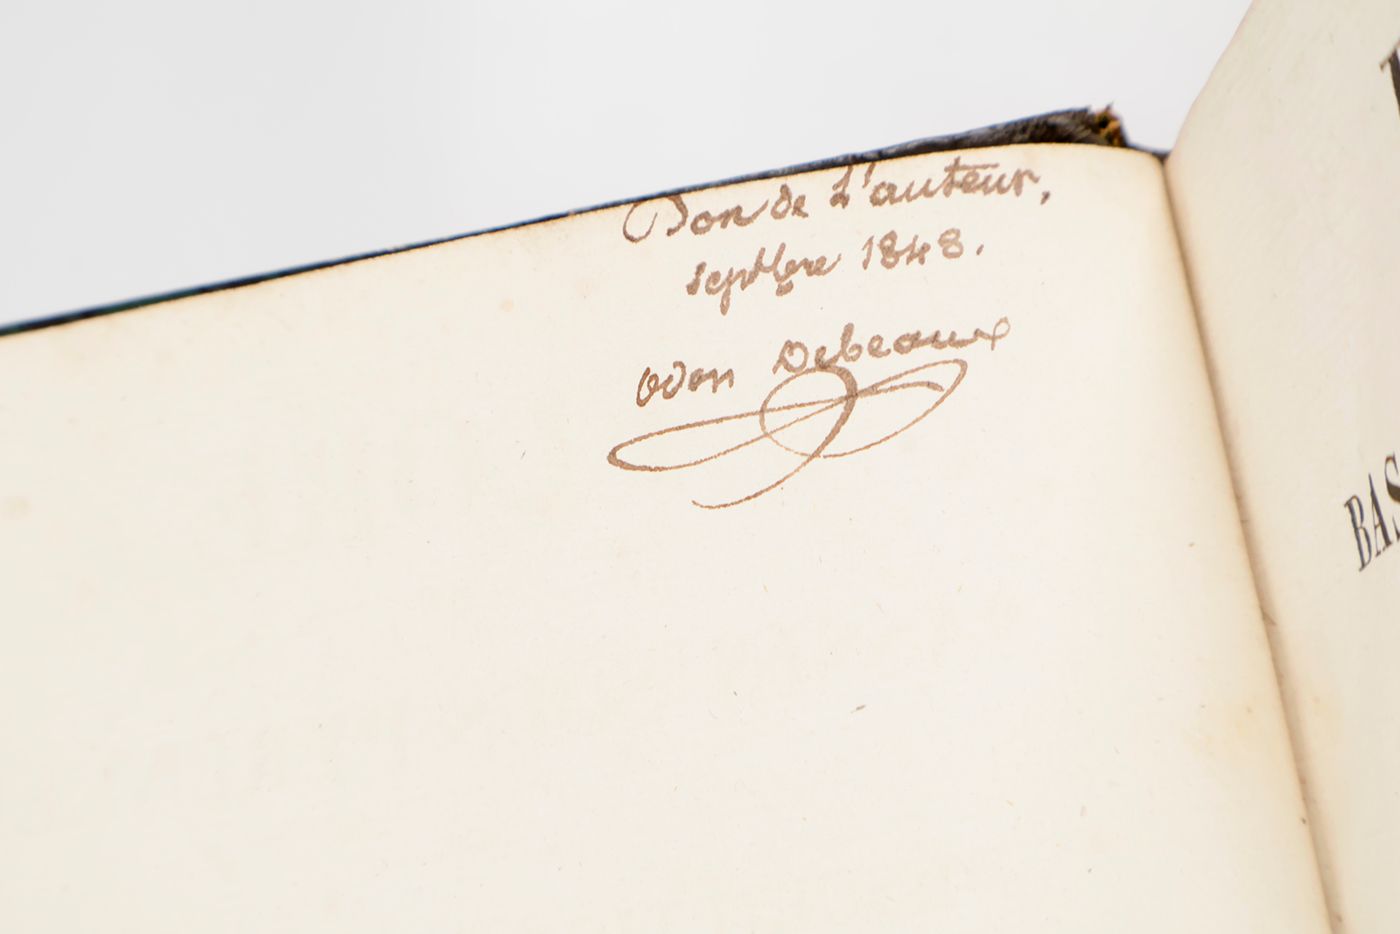 Don de L'auteur,
septbre 1848.
Odon Debeaux
BAS